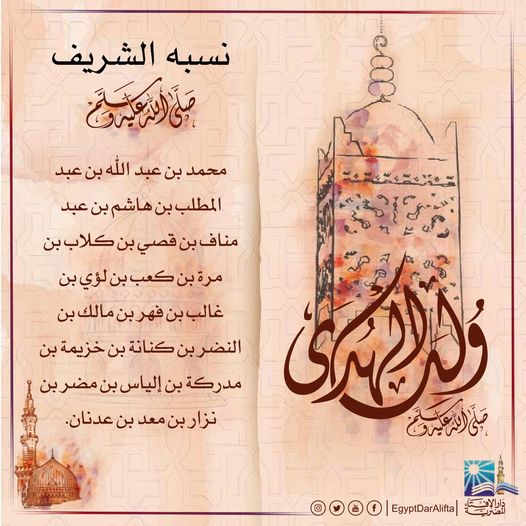 نسبه الشريف
صلى الله عليه وسلم
محمد بن عبد الله بن عبد
المطلب بن هاشم بن عبد
مناف بن قصي بن كلاب بن
مرة بن كعب بن لؤي بن
غالب بن فهر بن مالك بن
النضر بن كنانة بن خزيمة بن
مدركة بن إلياس بن مضر بن
نزار بن معد بن عدنان.
وُلِدَ الهُدى
صلى الله عليه وسلم
EgyptDarAlifta
دار الإفتاء
المصرية